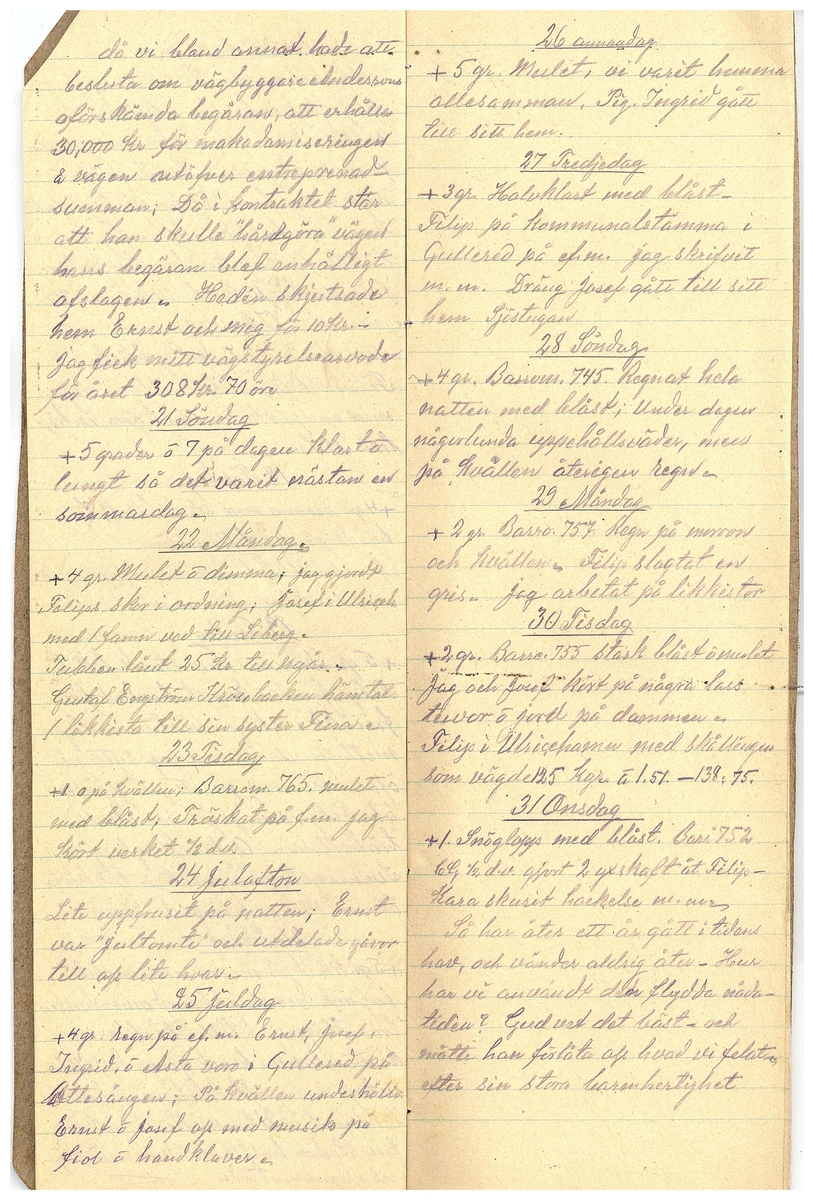 då vi bland annat hade att
besluta om vägbyggare Anderssons
oförskämda begäran, att erhålla
30,000 Kr för makadamiseringen
å vägen utöfver entreprenad-
summan; Då i kontraktet står
att han skulle "hårdgöra" vägen
hans begäran blef enhälligt
afslagen. Hedén skjutsade
hem Ernst och mig för 10 Kr.-
Jag fick mitt vägstyrelsearvode
för året 308 Kr. 70 öre
21 Söndag
+5 grader ö 7 på dagen Klart o
lungt så det varit nästan en
sommardag.
22 Måndag.
+4 gr. Mulet ö dimma; jag gjordt
Filips skor i ordning; Josef i Ulriceh.
med 1 famn ved till Liberg.
Tubben lånt 25 Kr till nyår.
Gustaf Engström Krösebacken hämtat
1 likkista till sin syster Fina.
23 Tisdag
+1 o på kvällen; Barrom. 765. mulet
med blåst; Tröskat på f.m. jag
kört verket ½ d.v.
24 Julafton
Lite uppfrusit på natten; Ernst
var "Jultomte" och utdelade gåvor
till oss lite hvar.
25 Juldag
+4 gr. regn på ef.m. Ernst, Josef,
Ingrid, ö Asta voro i Gullered på
Ottesången; På kvällen underhöllo
Ernst ö Josef oss med musik på
fiol ö handklaver.
26 annandag
+5 gr. Mulet, vi varit hemma
allesamman, Pig. Ingrid gått
till sitt hem.
27 Tredjedag
+3 gr. Halvklart med blåst-
Filip på Kommunalstämma i
Gullered på ef.m. jag skrifvit
m.m. Dräng Josef gått till sitt
hem Sjöstugan
28 Söndag
+4 gr. Barrom. 745. Regnat hela
natten med blåst; Under dagen
någorlunda uppehållsväder, men
på kvällen återigen regn.
29 Måndag
+2 gr. Barro. 757. Regn på morron
och kvällen. Filip slagtat en
gris. Jag arbetat på likkistor
30 Tisdag
+2 gr. Barro. 755 stark blåst ö mulet
Jag och Josef kört på några lass
tuvor ö jord på dammen.
Filip i Ulricehamn med
som vägde 125 Kgr. à 1.51. - 138: 75.
31 Onsdag
+1. Snöglopp med blåst. Baro 752
½ d.v. gjort 2 yxskaft åt Filip-
skurit hackelse m.m.
Så har åter ett år gått i tidens
hav, och vänder aldrig åter- Hur
har vi användt den flydda nåda-
tiden? Gud vet det bäst- och
måtte han förlåta oss hvad vi felat
efter sin stora barmhertighet